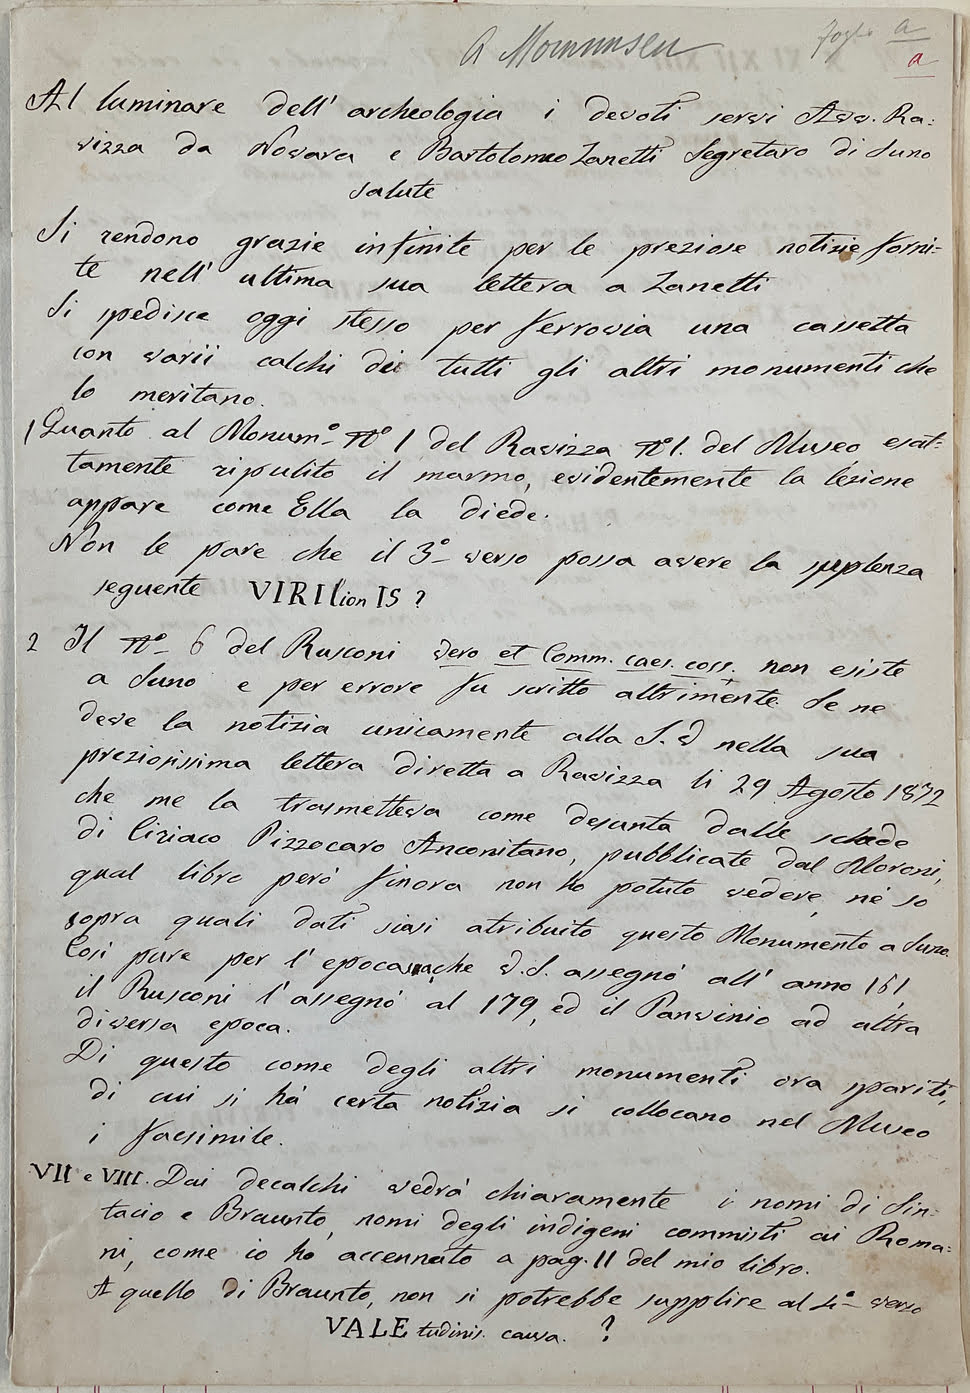 A Mommsen
foglio a
a
Al luminare dell' archeologia i devoti servi Avv. Ra:
vizza da Novara e Bartolomeo Zanetti Segretaro di Suno
salute
Si rendono grazie infinite per le preziose notizie forni-
te nell' ultima sua lettera a Zanetti
Si spedisce oggi stesso per ferrovia una cassetta
con varii calchi di tutti gli altri monumenti che
lo meritano.
1 Quanto al Monum.º Nº 1 del Ravizza Nº 1. del Museo esat-
tamente ripulito il marmo, evidentemente la lezione
appare come Ella la diede.
Non le pare che il 3º verso possa avere la supplenza
seguente VIRILionIS ?
2 Il Nº 6 del Rusconi Vero et Comm. caes. coss. non esiste
a Suno e per errore fu scritto altrimente. Se ne
deve la notizia unicamente alla S. V nella sua
preziosissima lettera diretta a Ravizza li 29 Agosto 1872
che me la trasmetteva come desunta dalle schede
di Ciriaco Pizzocaro Anconitano, pubblicate dal Moroni,
qual libro però finora non ho potuto vedere, né so
sopra quali dati siasi atribuito questo Monumento a Suno.
Così pure per l' epoca che V. S. assegnò all' anno 161,
il Rusconi l' assegnò al 179, ed il Panvinio ad altra
diversa epoca.
Di questo come degli altri monumenti ora spariti,
di cui si hà certa notizia si collocano nel Museo
i facsimile.
VII e VIII. Dai decalchi vedrà chiaramente i nomi di Sin-
tacio e Braunto, nomi degli indigeni commisti ai Roma:
ni, come io hò accennato a pag. 11 del mio libro.
A quello di Braunto, non si potrebbe supplire al 4º verso
VALE tudinis. causa. ?